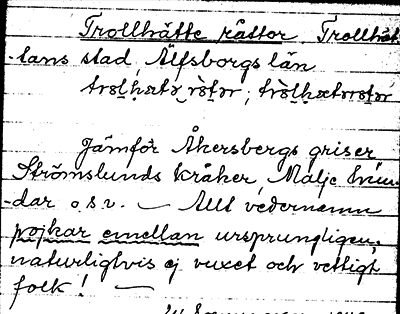 Trollhätte råttor Trollhät-
-tans stad, Älfsborgs län
Jämför Åkersbergs griser
Strömslunds kråker, Malje
-dar o.s.v. — Allt vedernamn
pojkar emellan ursprungligen,
naturligtvis ej vuxet och vettigt
folk! —